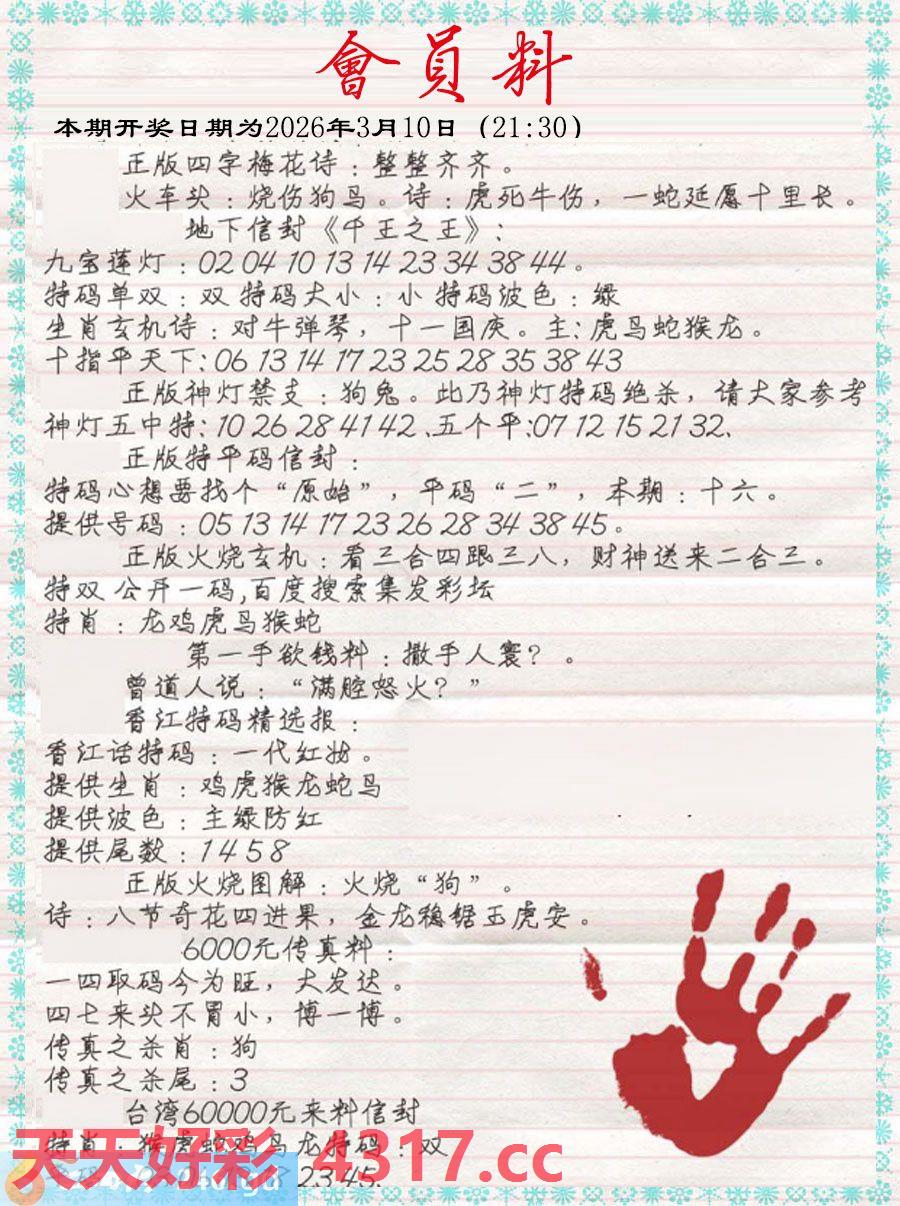 會員料
本期开奖日期为2026年3月10日（21:30）
正版四字梅花诗：整整齐齐。
火车头：烧伤狗马。诗：虎死牛伤，一蛇延愿十里长。
地下信封《千王之王》：
九宝莲灯：02 04 10 13 14 23 34 38 44。
特码单双：双 特码大小：小 特码波色：绿
生肖玄机诗：对牛弹琴，十一国庆。主：虎马蛇猴龙。
十指平天下：06 13 14 17 23 25 28 35 38 43
正版神灯禁支：狗兔。此乃神灯特码绝杀，请大家参考
神灯五中特：10 26 28 41 42 、五个平：07 12 15 21 32、
正版特平码信封：
特码心想要找个“原始”，平码“二”，本期：十六。
提供号码：05 13 14 17 23 26 28 34 38 45。
正版火烧玄机：看三合四跟三八，财神送来二合三。
特双公开一码,百度搜索集发彩坛
特肖：龙鸡虎马猴蛇
第一手欲钱料：撒手人寰？。
曾道人说：“满腔怒火？”
香江特码精选报：
香江话特码：一代红妆。
提供生肖：鸡虎猴龙蛇马
提供波色：主绿防红
提供尾数：1 4 5 8
正版火烧图解：火烧“狗”。
诗：八节奇花四进果，金龙稳锯玉虎安。
6000元传真料：
一四取码今为旺，大发达。
四七来头不冒小，博一博。
传真之杀肖：狗
传真之杀尾：3
台湾60000元来料信封
特肖：猴虎蛇鸡马龙特码：双
天天好彩 4317.cc
23 45.